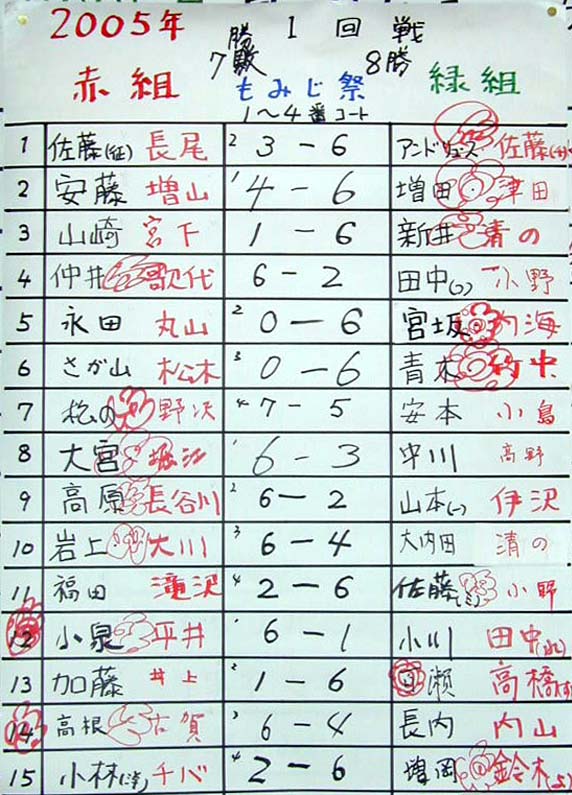 2005年 1回戦
7勝 8勝
敗
赤組 もみじ祭 緑組
1〜4番コート
1 佐藤(征) 長尾 2 3-6 アンドリュース 佐藤
2 安藤 増山 1 4-6 増田 津田
3 山崎 宮下 1-6 新井 清の
4 仲井 歌代 6-2 田中 小野
5 永田 丸山 2 0-6 宮坂 内海
6 さが山 松木 3 0-6 青木 竹中
7 松の 野沢 4 7-5 安本 小島
8 大宮 堀江 1 6-3 中川 高野
9 高原 長谷川 2 6-2 山本(一) 伊沢
10 岩上 大川 3 6-4 大内田 清の
11 福田 滝沢 4 2-6 佐藤(ミ) 小野
12 小泉 平井 1 6-1 小川 田中
13 加藤 井上 2 1-6 瀬 高橋
14 高根 古賀 3 6-4 長内 内山
15 小林(洋) チバ 4 2-6 増岡 鈴木